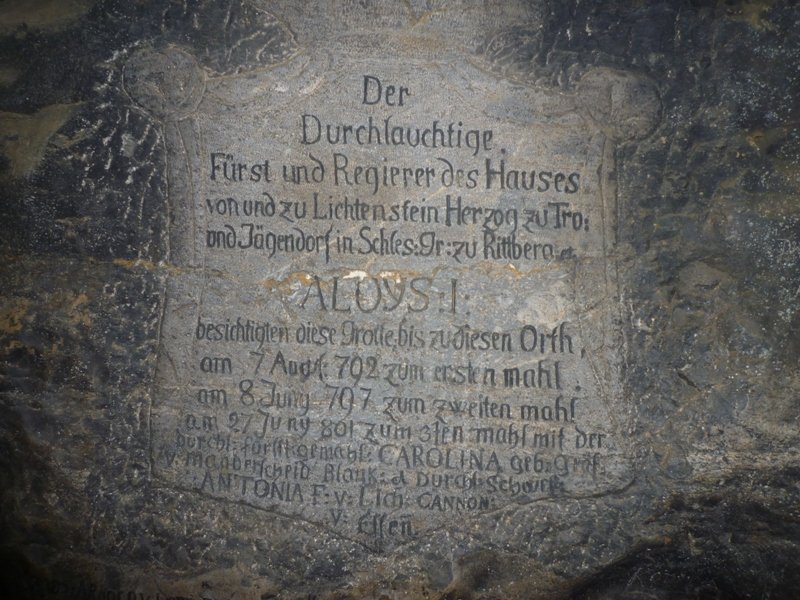 Der
Durchlauchtige
Fürst und Regierer des Hauses
von und zu Lichtenstein Herzog zu Tro:
und Jägendorf in Schles: Gr: zu Rittberg
ALOYS: I:
besichtigten diese Grotte, bis zu diesen Orth,
am 7 Augst: 792 zum ersten mahl.
am 8 Juny 797 zum zweiten mahl
am 27 Juny 801 zum 3ten mahl mit der
durchl: fürstl: gemahl: CAROLINA geb: Gräf:
v: Manderscheid Blank: d Durchl: Schwest:
ANTONIA F: v: Lich: CANNON:
v: Essen